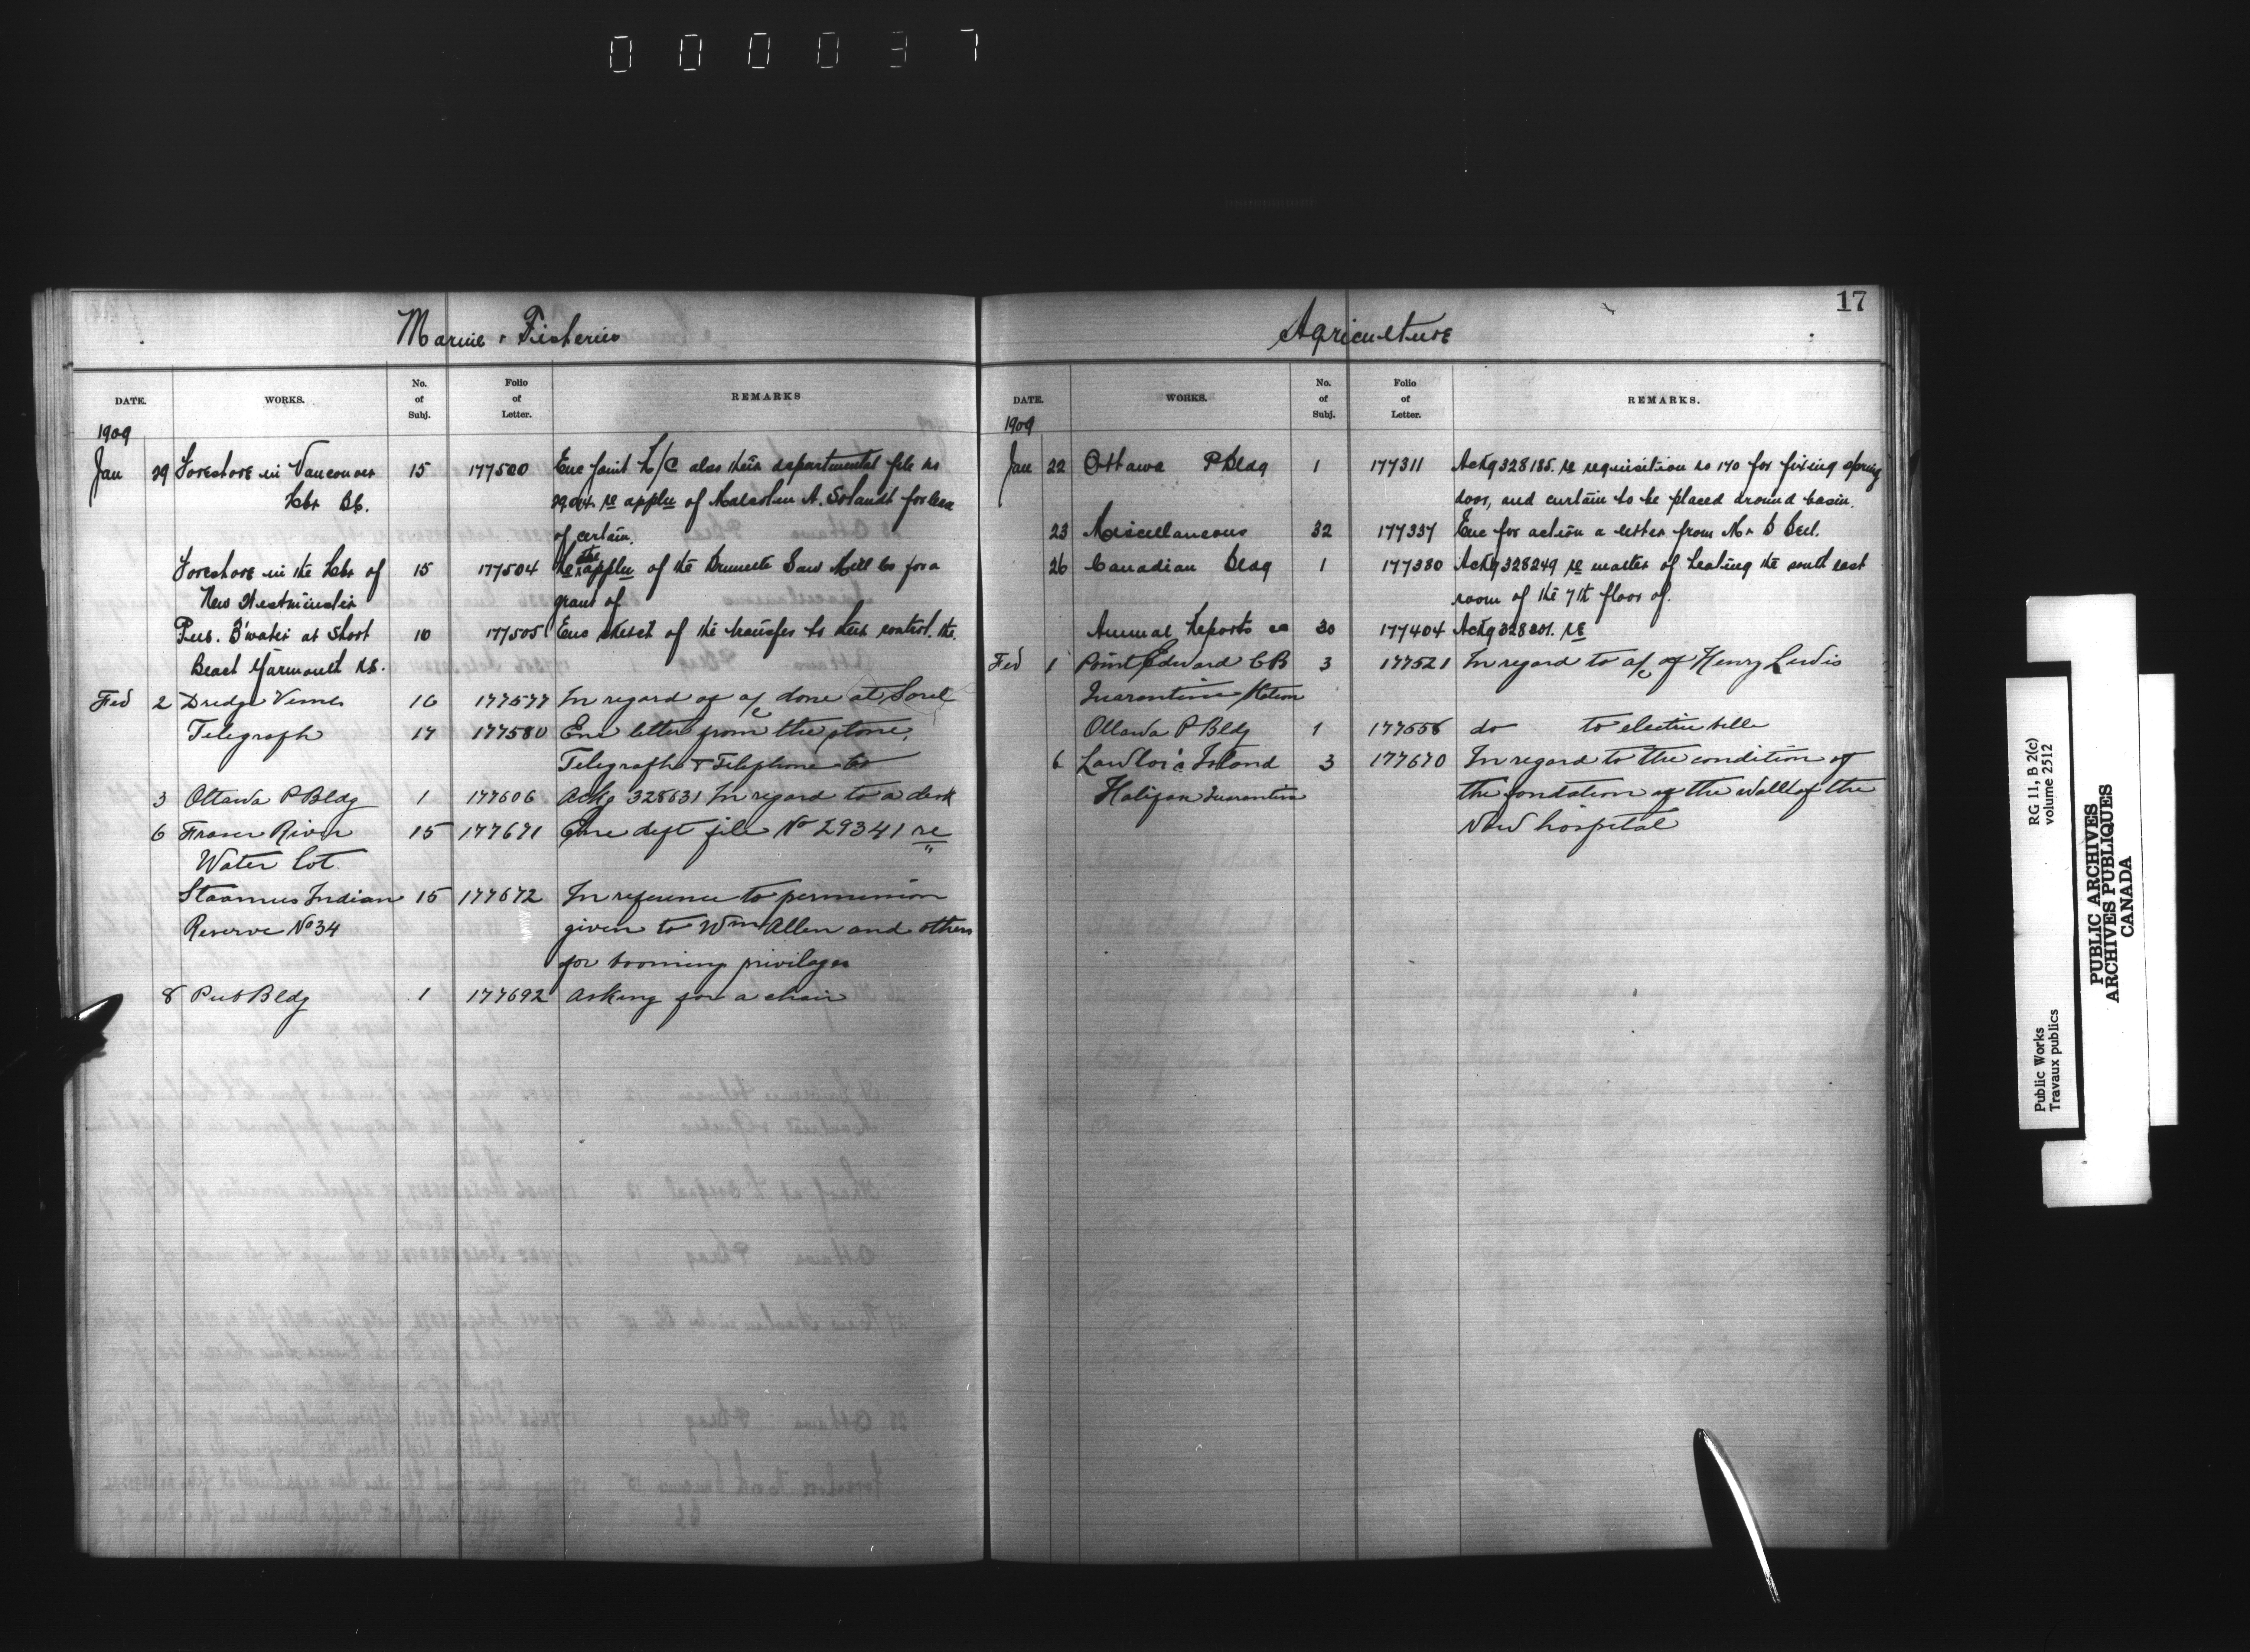 000037
Marine & Fisheries
DATE. WORKS. No. of Subj. Folio of Letter. REMARKS
1909
Jan 29 Foreshore in Vancouver 15 177500 Enc Joint L/C also their departmental file no
Hbr BC. re appln of Malcolm A. Solandt for lease
of certain.
Foreshore in the Hbr of 15 177504 Re the appln of the Brunette Saw Mill Co for a
New Westminster grant of
Pub. B'water at Short 10 177505 Enc sketch of the transfer to their control. the
Beach Yarmouth NS.
Feb 2 Dredge 16 177577 In regard of a/c done at Sorel
Telegraph 17 177580 Enc letter from the stone,
Telegraph & Telephone Co
3 Ottawa P Bldg 1 177606 Ackg 328631 In regard to a desk
6 Fraser River 15 177671 Enc dept file No 29341 re
Water lot "
Staamus Indian 15 177672 In reference to permission
Reserve No 34 given to Wm Allen and others
for booming privileges
8 Pub Bldg 1 177692 Asking for a chair
17
Agriculture
DATE. WORKS. No. of Subj. Folio of Letter. REMARKS.
1909
Jan 22 Ottawa P Bldg 1 177311 Ackg 328185. re requisition no 170 for fixing spring
door, and curtain to be placed around basin.
23 Miscellaneous 32 177337 Enc for action a letter from Mr D Bell.
26 Canadian Bldg 1 177380 Ackg 328249 re matter of heating the south east
room of the 7th floor of.
Annual Reports 30 177404 Ackg 328201. re
Feb 1 Point Edward CB 3 177521 In regard to a/c of Henry Lewis
Quarantine Station
Ottawa P Bldg 1 177556 do to electric bells
6 Lawlor's Island 3 177670 In regard to the condition of
Halifax Quarantine the fondation of the wall of the
New hospital
Public Works RG 11, B 2(c)
Travaux publics volume 2512
PUBLIC ARCHIVES
ARCHIVES PUBLIQUES
CANADA